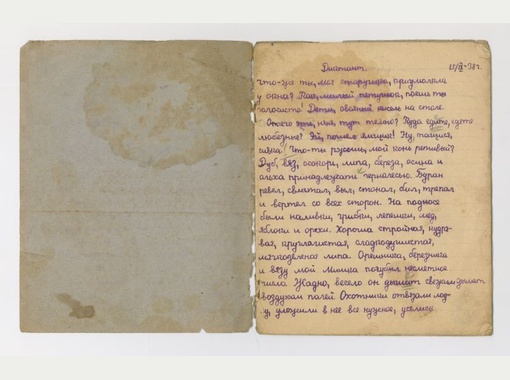 Диктант. 15/IX-38г.
Что-же ты, моя старушка, приумолкла
у окна? Как, милый петушок, поешь ты
голосисто! Дети, овсяный кисель на столе.
Отчего мне, няня, тут темно? Куда едете, едете
любезные? Эй, пошел ямщик! Ну, тащися,
сивка! Что-ты ржешь, мой конь ретивый?
Дуб, вяз, осокорь, липа, береза, осина и
ольха принадлежат чернолесью. Буран
ревел, свистал, выл, стонал, бил, трепал
и вертел со всех сторон. На подносе
были наливки, грибки, лепешки, мед,
яблоки и орехи. Хороша стройная, кудря-
вая, круглолистая, сладкодушистая,
мягкодревесная липа. Орешника, березника
и вязу мой Мишка погубил несметное
число. Жадно, весело он дышит свежим
воздухом полей. Охотники отвязали лод-
ку, уложили в нее все нужное, уселись